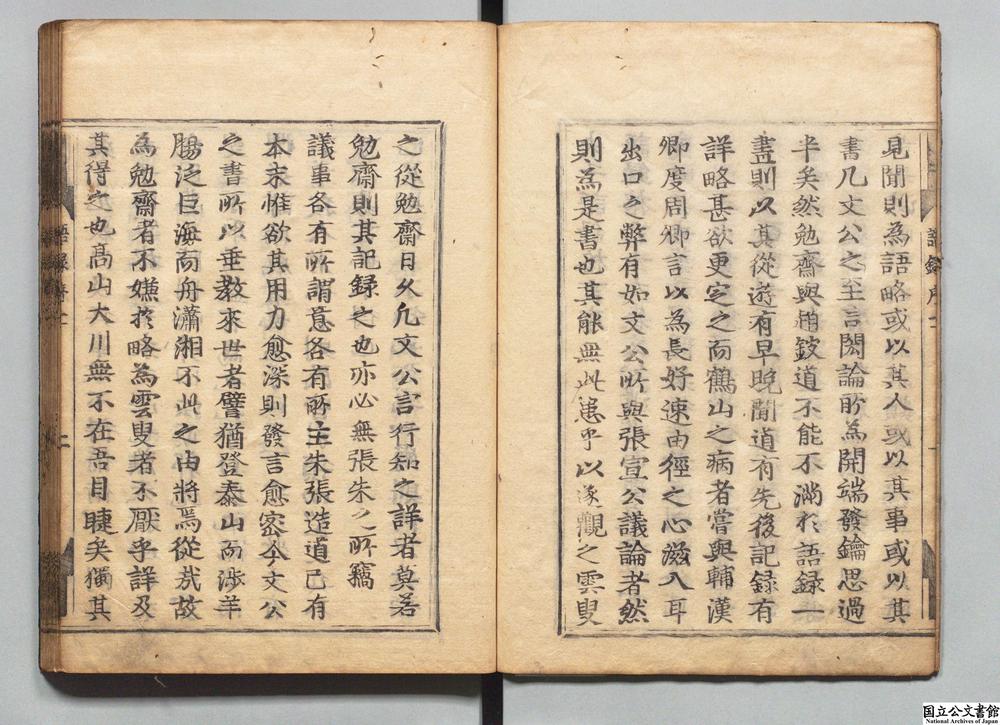 見聞則為語略或以其人或以其事或以其
書凡文公之至言閎論所為開端發鑰思過
半矣然勉齋與趙鈘道不能不滿於語録一
書則以其從遊有早晚聞道有先後記録有
詳略甚欲更定之而鶴山之病者嘗與輔漢
卿度周卿言以為長好速由徑之心滋入耳
出口之弊有如文公所與張宣公議論者然
則為是書也其能無此患乎以遂觀之雲叟
之從勉齋日久凡文公言行知之詳者莫若
勉齋則其記録之也亦必無張朱之所竊
議事各有所謂意各有所主朱張造道已有
本末惟欲其用力愈深則發言愈密今文公
之書所以垂教來世者譬猶登泰山而涉羊
腸泛巨海而舟瀟湘不此之由將焉從哉故
為勉齋者不嫌於略為雲叟者不厭乎詳及
其得之也髙山大川無不在吾目睫矣獨其
語録序
二
国立公文書館
National Archives of Japan